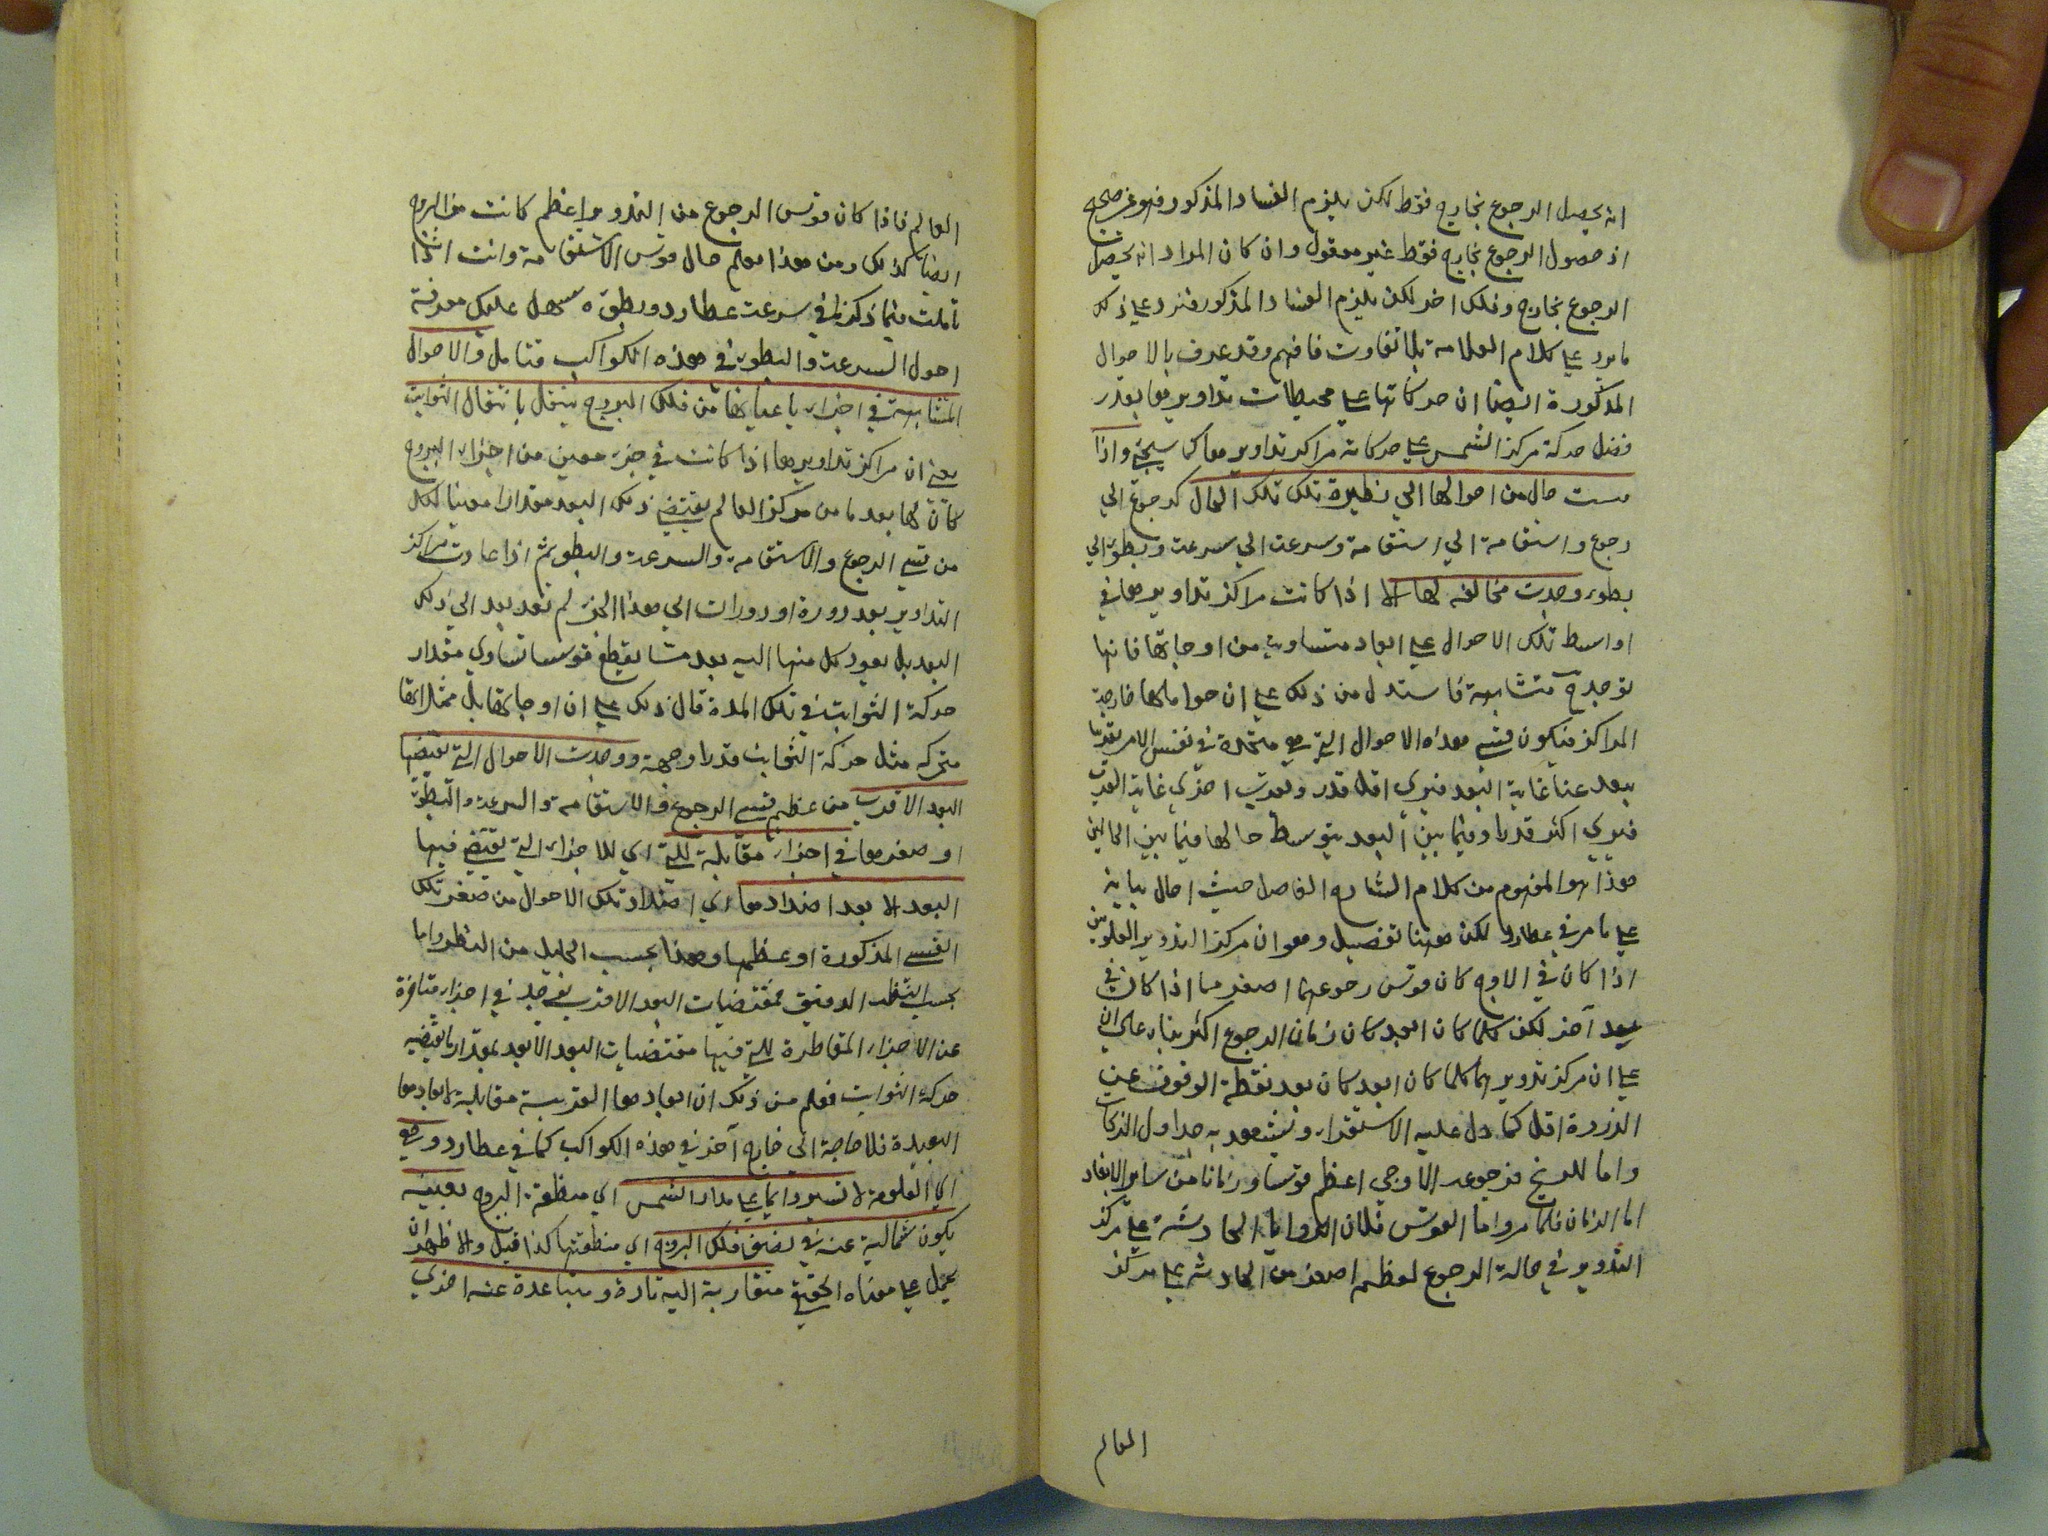 انه يحصل الرجوع بخارج فقط لكن يلزم الفساد المذكور فهو غير صحيح
اذ حصول الرجوع بخارج فقط غير معقول وان كان المراد انه يحصل
الرجوع بخارج وفلك اخر لكن يلزم الفساد المذكور فنرد على ذلك
ما يرد على كلام العلامة بلا تفاوت فافهم وقد عرف بالاحوال
المذكورة ايضا ان حركاتها على محيطات تداويرها بقدر
فضل حركة مركز الشمس على حركات مراكز تداويرها كما سيجئ واذا
حال من احوالها الي نظيرة تلك تلك الحال كرجوع الي
رجوع واستقامة الي استقامة وسرعت الي سرعت وبطوء الي
بطوء وجدت مخالفه لها الا اذا كانت مراكز تداويرها في
اواسط تلك الاحوال على ابعاد متساوية من اوجاتها فانها
توجد ح متشابهة فاستدل من ذلك على ان حواملها خارجة
المراكز فيكون قسي هذه الاحوال التي هي متحدة في نفس الامر
ببعد عنا غاية البعد فيري اقل قدر وبقرب اخري غاية القرب
فيري اكثر قدرا وفيما بين البعد يتوسط حالها فيما بين الحالين
هذا هو المفهوم من كلام الشارح الفاضل حيث احال بيانه
على ما مر في عطارد لكن ههنا تفصيل وهو ان مركز التدوير العلويين
اذا كان في الاوج كان قوس رجوعهما اصغر مما اذا كان في
بعد آخر لكن كلما كان ابعد كان زمان الرجوع اكثر بناء على ان
على ان مركز تدويرهما كلما كان ابعد كان بعد نقطة الوقوف عن
الذروة اقل كما دل عليه الاستقراء ويشهد به جداول
واما للمريخ فرجوعه الاوجي اعظم قوسا وزمانا من ساير الابعاد
اما الزمان فلما مر واما القوس فلان الزوايا الحادثة على مركز
التدوير في حالة الرجوع لعظمه اصغر من الحادثة على مركز
العالم
العالم فاذا كان قوس الرجوع من التدوير اعظم كانت من البروج
ايضا كذلك ومن هذا يعلم حال قوس الاستقامة وانت اذا
تاملت فيما ذكرنا في سرعت عطارد وبطوءه سهل عليك معرفة
احول السرعت والبطوء في هذه الكواكب فتامل والاحوال
المتشابهة في اجزاء باعيانها من فلك البروج ينتقل بانتقال الثوابت
يعني ان مراكز تداويرها اذا كانت في جزء معين من اجزاء البروج
كان لها بعد ما من مركز العالم يقتضي ذلك البعد مقدارا معينا لكل
من قسي الرجوع والاستقامة والسرعة والبطوء ثم اذا عادت مراكز
التداوير بعد دورة او دورات الي هذا الجزء لم تعد بعد الي ذلك
البعد بل يعود كل منها اليه بعد ما يقطع قوسا تساوي مقدار
حركة الثوابت في تلك المدة قال ذلك على ان اوجاتها بل ممثلاتها
متحركه مثل حركة الثوابت قدرا وجهة ووجدت الاحوال التي يقتضيها
البعد الاقرب من عظم قسي الرجوع والاستقامة والسرعة والبطوء
او صغرها في اجزاء مقابلة للتي اي للاجزاء التي تقتضي فيها
البعد الابعد اضدادها اي اضداد تلك الاحوال من صغر تلك
القسي المذكورة او عظمها وهذا بحسب الجليل من النظر واما
بحسب النظر الدقيق فمقتضيات البعد الاقرب يوجد في اجزاء متاخرة
عن الاجزاء المتقاطرة للتي فيها مقتضيات البعد الابعد بمقدار ما يقتضيه
حركة الثوابت فعلم من ذلك ان ابعادها القريبة مقابلية لابعادها
البعيدة فلا حاجة الي خارج آخر في هذه الكواكب كما في عطارد وهي
اي العلوية لا تسير دايما على مدار الشمس اي منطقة البروج بعينه
يكون شمالية عنه في نصف فلك البروج اي منطقتها كذا قيل والاظهر ان
يحمل على معناه الحقيقي متقاربة اليه تارة ومتباعدة عنه اخري